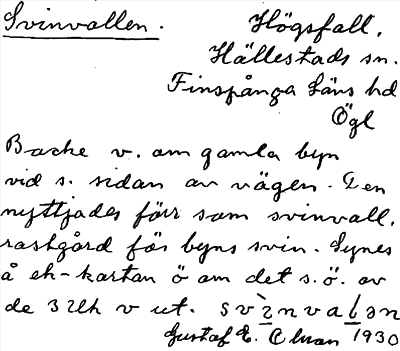 Svinvallen.
Högsfall,
Hällestads sn.
Finspånga Läns hd
Ögl
Backe v. om gamla byn
vid s. sidan av vägen. Den
nyttjades förr som svinvall,
rastgård för byns svin. Synes
å ek-kartan ö om det s.ö. av
de 3 Uh v ut. svìnvalən
Gustaf E. Olsson 1930